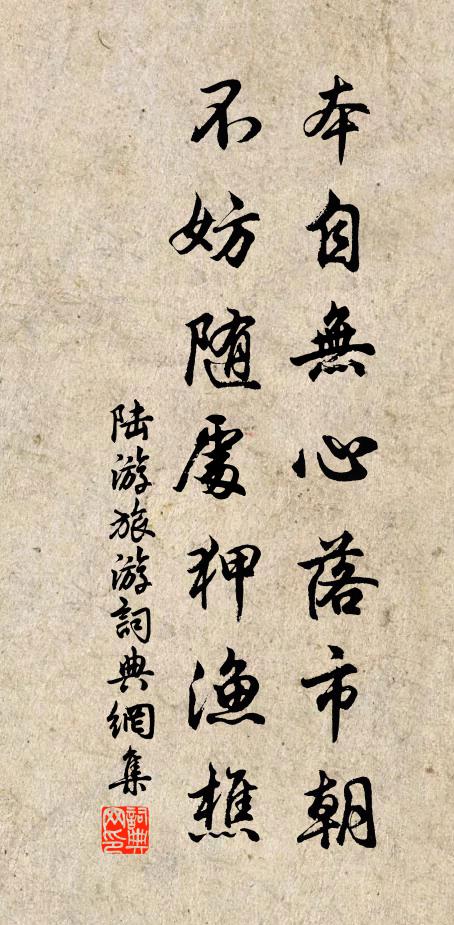 本自無心落市朝
不妨随處狎漁樵
陆游旅游詞典網集
詞典网印